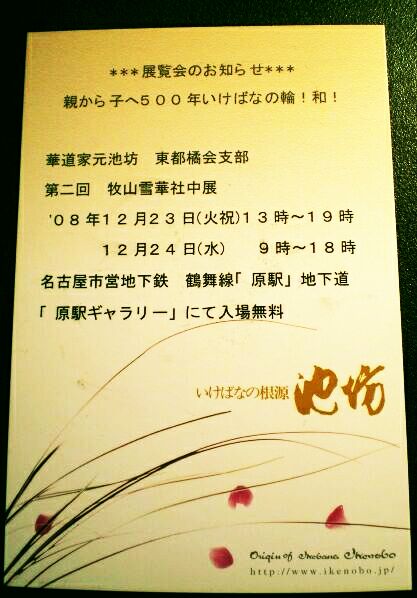 ***展覧会のお知らせ***
親から子へ500年いけばなの輪!和!
華道家元池坊 東都橘会支部
第二回 牧山雪華社中展
'08年12月23日(火祝)13時~19時
12月24日(水) 9時~18時
名古屋市営地下鉄 鶴舞線「原駅」地下道
「原駅ギャラリー」にて入場無料
いけばなの根源 池坊
Origin of Ikebana Ikenobo
http://www.ikenobo.jp/